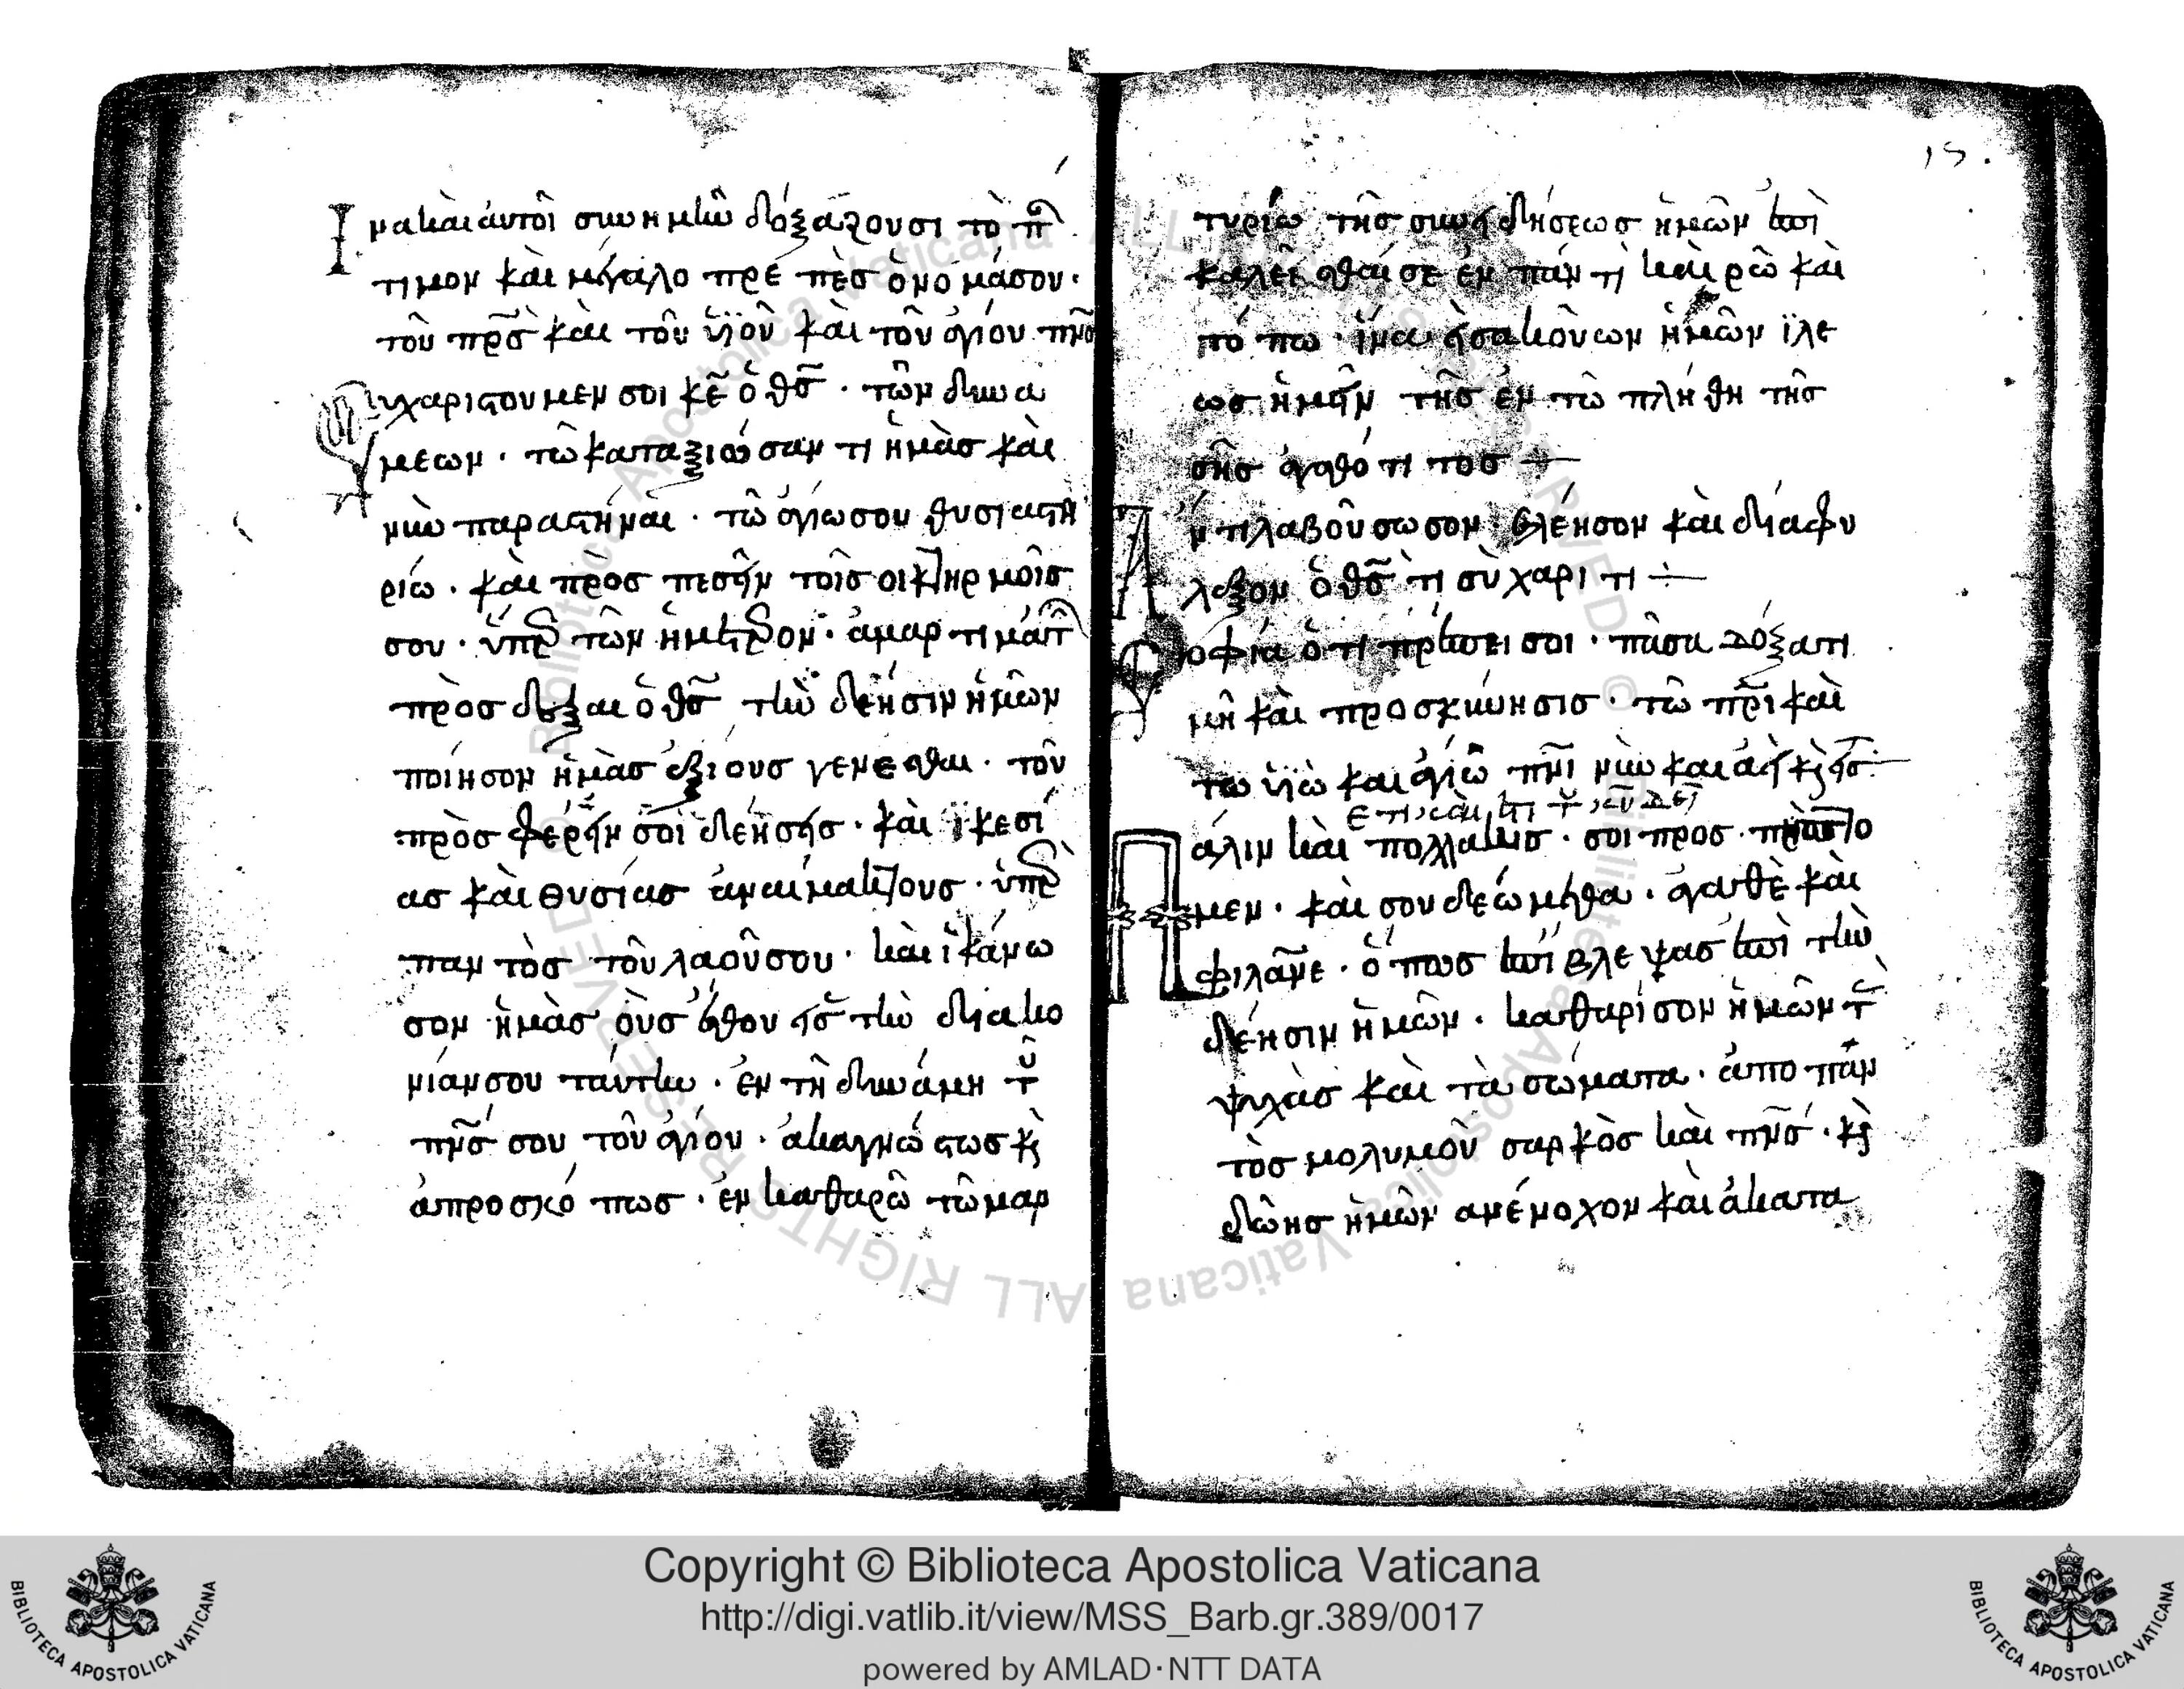 Ινα καὶ αυτοὶ σὺν ημῖν δόξάζουσι τὸ πᾶ
τιμον καὶ μεγαλο πρέ πὲσ ὀνομάσου·
τοῦ πρ̅σ καὶ τοῦ ϋἱοῦ καὶ τοῦ ἁγίου πν̅σ
Ευχαριστουμεν σοι κ̅ε ὁ θ̅σ · τῶν δυνα
μεων · τῶ καταξιώσαν τι ἡμὰσ καὶ
νῦν παραστήναι · τῶ ἁγίωσου θυσιαστη
ρίω · καὶ πρὸσ πεσεῖν τοῖσ οικτηρμοῖσ
σου · ὑπὲρ τῶν ἡμετέρον · ἁμαρ τιμάτ
πρὸσ δεξαι ὁ θ̅σ τὴν δεήσιν ἡμῶν
ποίησον ἡμὰσ ἀξίουσ γενεσθαι · τοῦ
πρὸσ φερειν σοὶ δεήσεισ · καὶ ϊκεσί
ασ καὶ θυσίασ ἀναιμακτουσ · ὑπὲρ
παν τὸσ τοῦ λαοῦσου · καὶ ἱκάνω
σον ἡμὰσ οὺσ ἔθου εισ τὴν διακο
νίανσου ταύτην · ἐν τῆ δυνάμη τοῦ
πν̅σ σου τοῦ ἁγίου · ἀκαγνώστωσ κ̀
ἀπροσκό πωσ · ἐν καθαρῶ τῶ μαρ
ις.
τυρίω τῆσ συνειδήσεωσ ἡμῶν ἐπὶ
καλεῖσθαί σε ἐν παν τὶ καιρῶ καὶ
τό πω · ἵνα εἰσακοῦων ἡμῶν ϊλε
ωσ ἡμῖν τῆσ ἐν τῶ πλήθη τῆσ
σῆσ ἀγαθό τι τοσ
Αν τιλαβοῦ σωσον ἐλέησον καὶ διαφυ
λαξον ὁ θ̅σ τι σὺ χαρι τι
Σοφία ὁ τι πρέπει σοι · πᾶσα δόξα τι
μὴ καὶ προσκύνησισ · τῶ πρ̅ι καὶ
τω ϋἱῶ και ἁγίω πν̅ι νῦν και ἀεὶ κ̀ εισ
Πάλιν καὶ πολλακισ · σοι προσ πιπτο
μεν · καὶ σου δεόμεθα · ἀγαθὲ καὶ
φιλαν̅ε · ὁ πωσ ἐπί βλε ψασ ἐπὶ τὴν
δέησιν ἡμῶν · καθαρίσον ἡμῶν τ
ψυχὰσ καὶ τὰ σώματα · ἀπο παν
τὸσ μολυμοῦ σαρκὸσ καὶ πν̅σ · κ̀
δώησ ἡμῶν ανένοχον καὶ ἀκατα
Copyright © Biblioteca Apostolica Vaticana
http://digi.vatlib.it/view/MSS_Barb.gr.389/0017
powered by AMLAD·NTT DATA
BIBLIOTECA APOSTOLICA VATICANA
BIBLIOTECA APOSTOLICA VATICANA